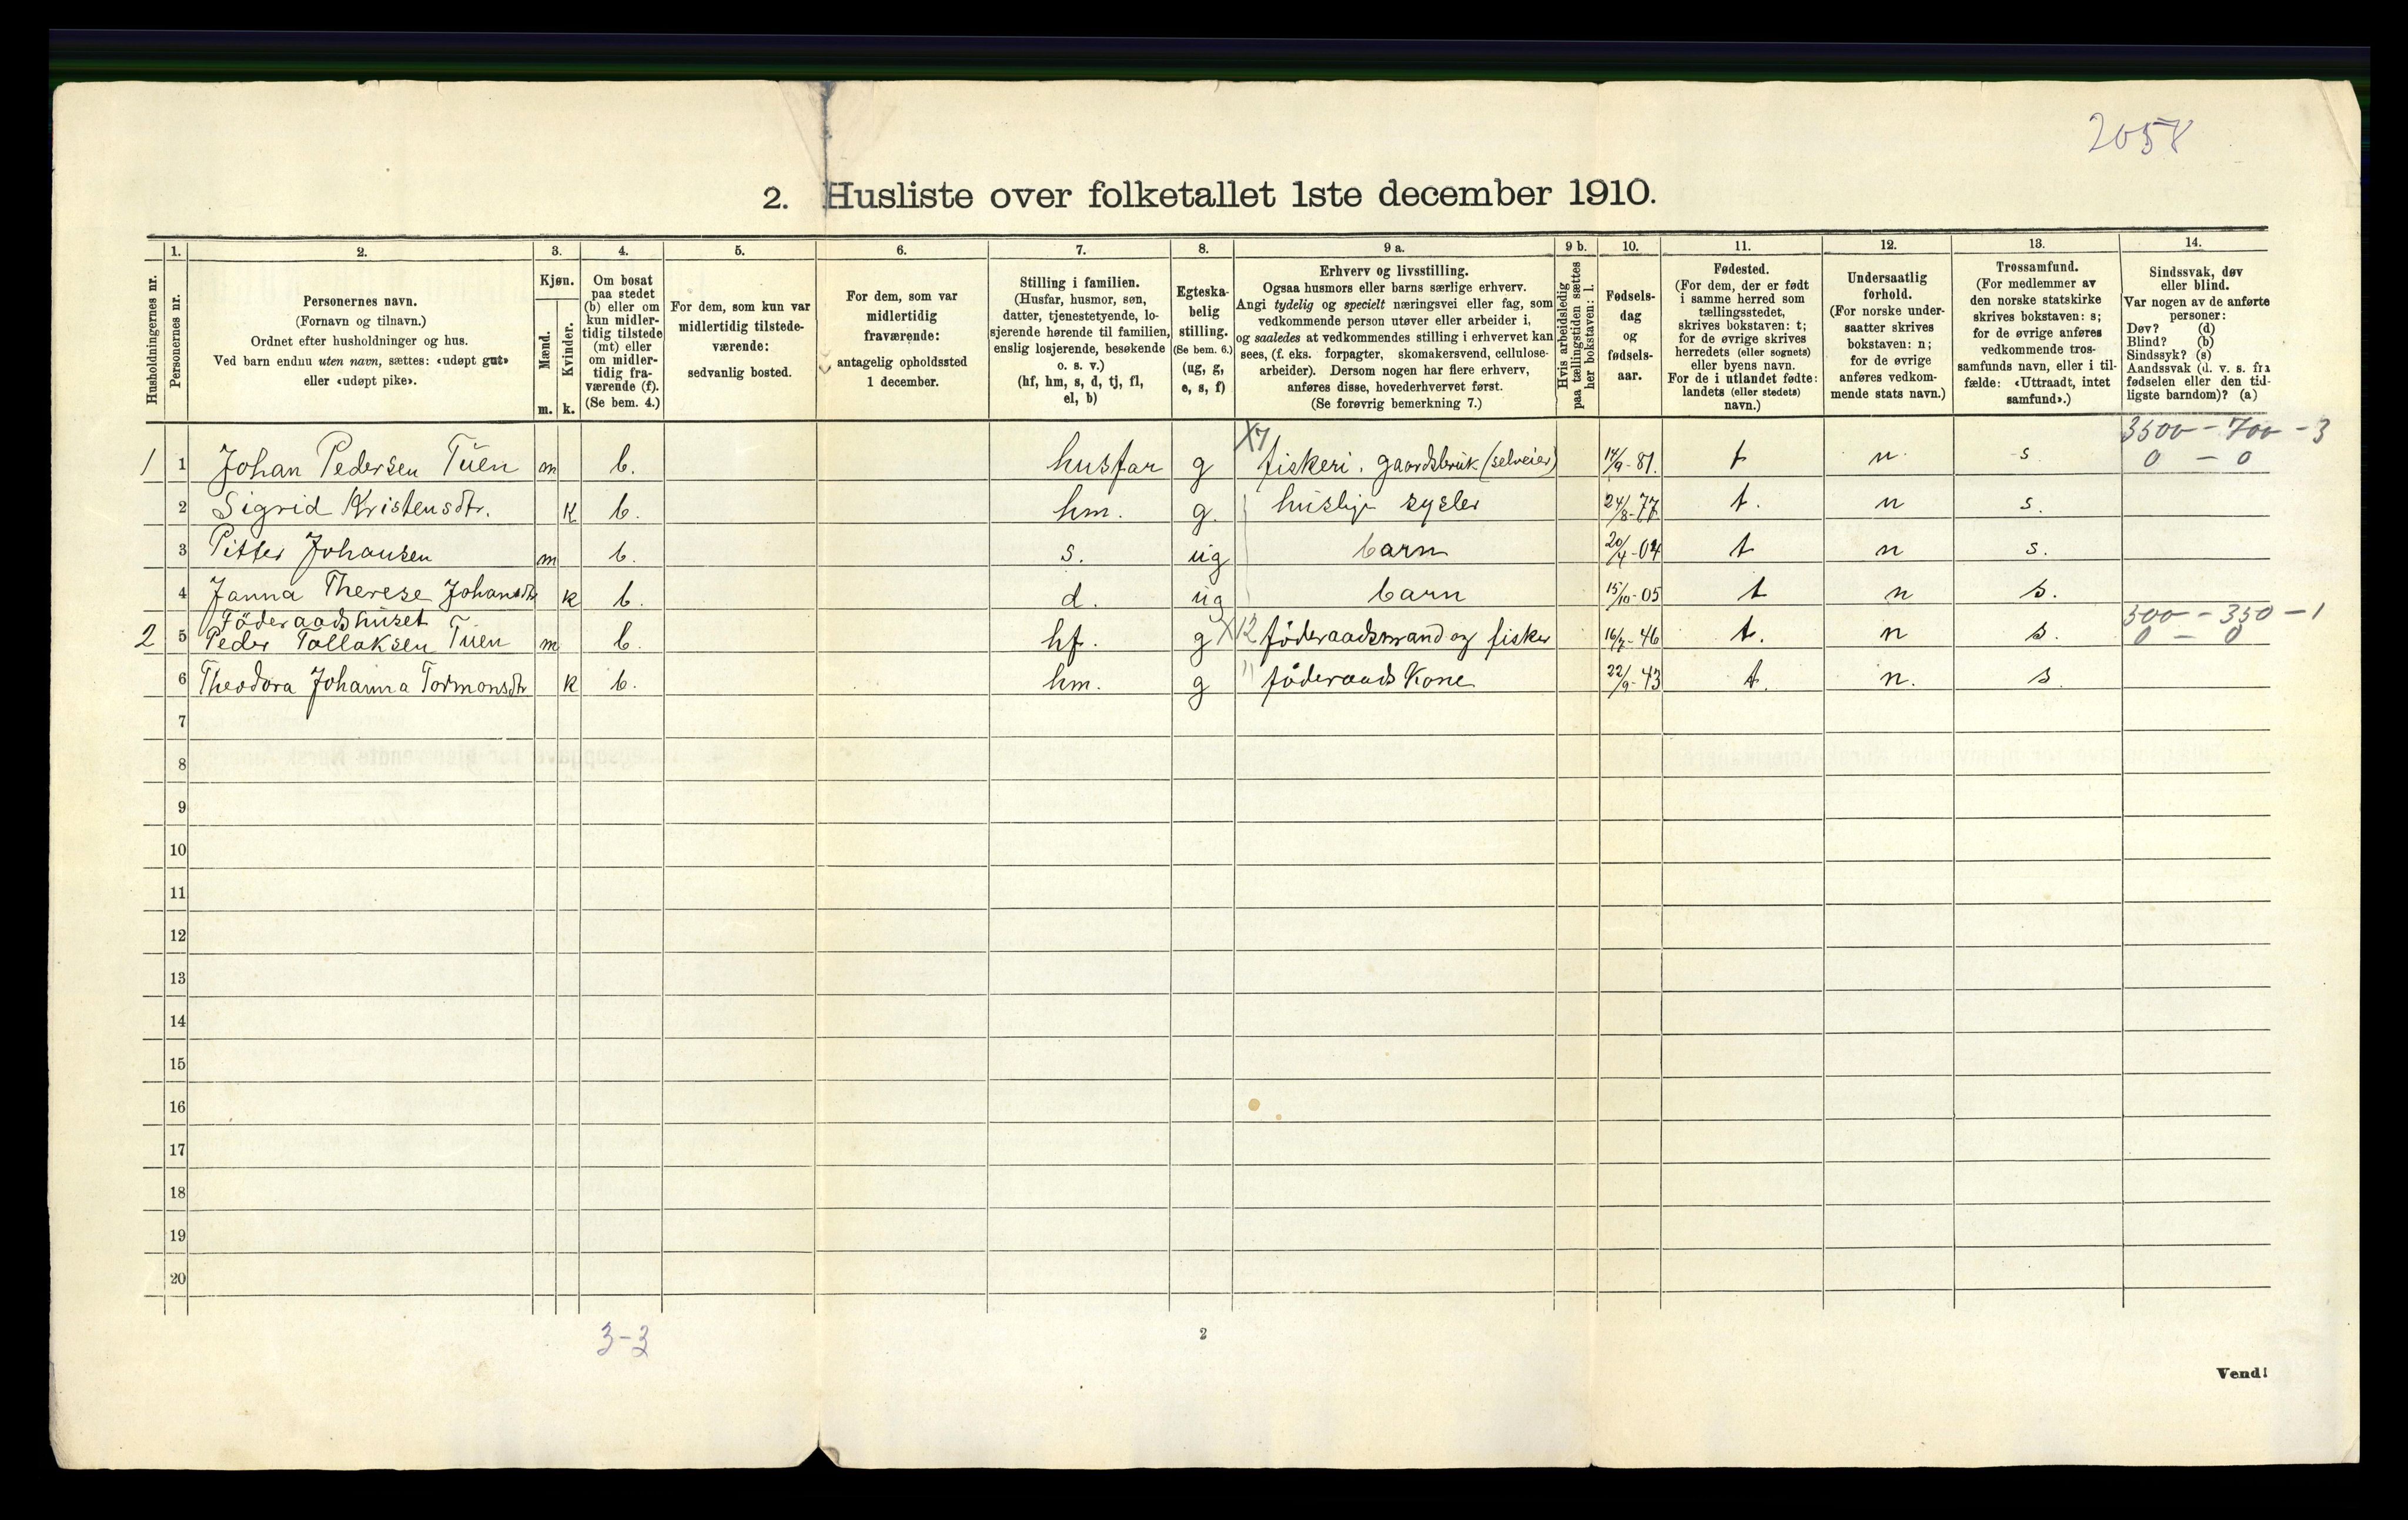 2058
2. Husliste over folketallet 1ste december 1910.
Husholdningernes nr.
1. Personernes nr.
2. Personernes navn. (Fornavn og tilnavn.) Ordnet efter husholdninger og hus. Ved barn endnu uten navn, sættes: «udøpt gut» eller «udøpt pike».
3. Kjøn. Mænd. m. Kvinder. k.
4. Om bosat paa stedet (b) eller om kun midler-tidig tilstede (mt) eller om midler-tidig fra-værende (f). (Se bem. 4.)
5. For dem, som kun var midlertidig tilstede-værende: sedvanlig bosted.
6. For dem, som var midlertidig fraværende: antagelig opholdssted 1 december.
7. Stilling i familien. (Husfar, husmor, søn, datter, tjenestetyende, lo-sjerende hørende til familien, enslig losjerende, besøkende o. s. v.) (hf, hm, s, d, tj, fl, el, b)
8. Egteska-belig stilling. (Se bem. 6.) (ug, g, e, s, f)
9 a. Erhverv og livsstilling. Ogsaa husmors eller barns særlige erhverv. Angi tydelig og specielt næringsvei eller fag, som vedkommende person utøver eller arbeider i, og saaledes at vedkommendes stilling i erhvervet kan sees, (f. eks. forpagter, skomakersvend, cellulose-arbeider). Dersom nogen har flere erhverv, anføres disse, hovederhvervet først. (Se forøvrig bemerkning 7.)
9 b. Hvis arbeidsledig paa tællingstiden sættes her bokstaven: l.
10. Fødsels-dag og fødsels-aar.
11. Fødested. (For dem, der er født i samme herred som tællingsstedet, skrives bokstaven: t; for de øvrige skrives herredets (eller sognets) eller byens navn. For de i utlandet fødte: landets (eller stedets) navn.)
12. Undersaatlig forhold. (For norske under-saatter skrives bokstaven: n; for de øvrige anføres vedkom-mende stats navn.)
13. Trossamfund. (For medlemmer av den norske statskirke skrives bokstaven: s; for de øvrige anføres vedkommende tros-samfunds navn, eller i til-fælde: «Uttraadt, intet samfund».)
14. Sindssvak, døv eller blind. Var nogen av de anførte personer: Døv? (d) Blind? (b) Sindssyk? (s) Aandssvak (d. v. s. fra fødselen eller den tid-ligste barndom)? (a)
X7 3500 - 700 - 3
1 1 Johan Pedersen Tuen m b. husfar g fiskeri. gaardsbruk (selveier) 14/9-81. t n. s. 0 - 0
2 Sigrid Kristensdtr. k b. hm. g. huslige sysler 24/8-77. t. n s.
3 Pitter Johansen m b. s. ug barn 20/4-04 t n s.
4 Janna Therese Johansdtr k b. d. ug barn 15/10-05 t n s.
Föderaadshuset 500 - 350 - 1
2 5 Peder Tollaksen Tuen m b. hf. g X12 föderaadsmand og fisker 16/7-46 t. n s. 0 - 0
6 Theodora Johanna Tormonsdtr k b. hm. g " föderaads Kone 22/9-43 t. n. s.
7
8
9
10
11
12
13
14
15
16
17
18
19
20
3-3
2
Vend!